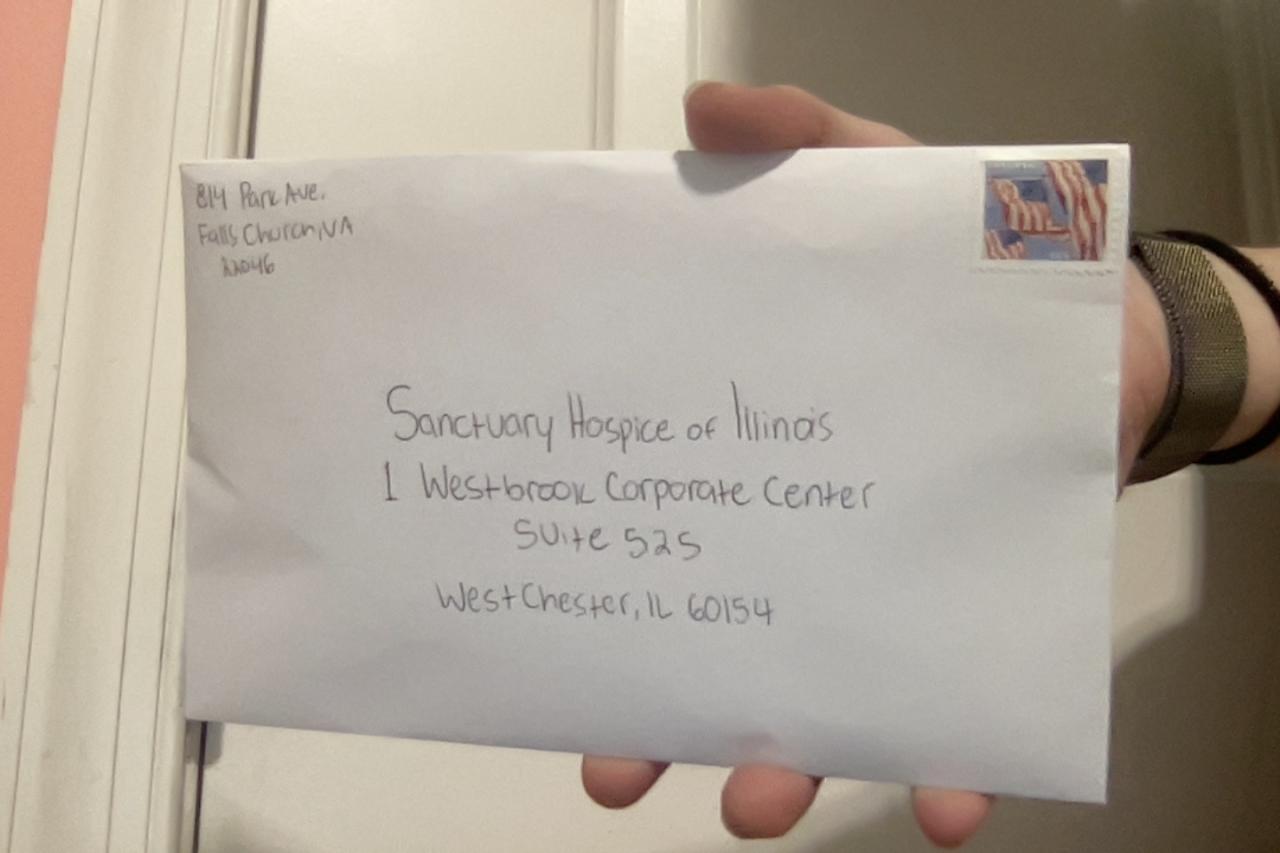 814 Park Ave.
Falls Church, VA
22046
Sanctuary Hospice of Illinois
1 Westbrook Corporate Center
Suite 525
WestChester, IL 60154